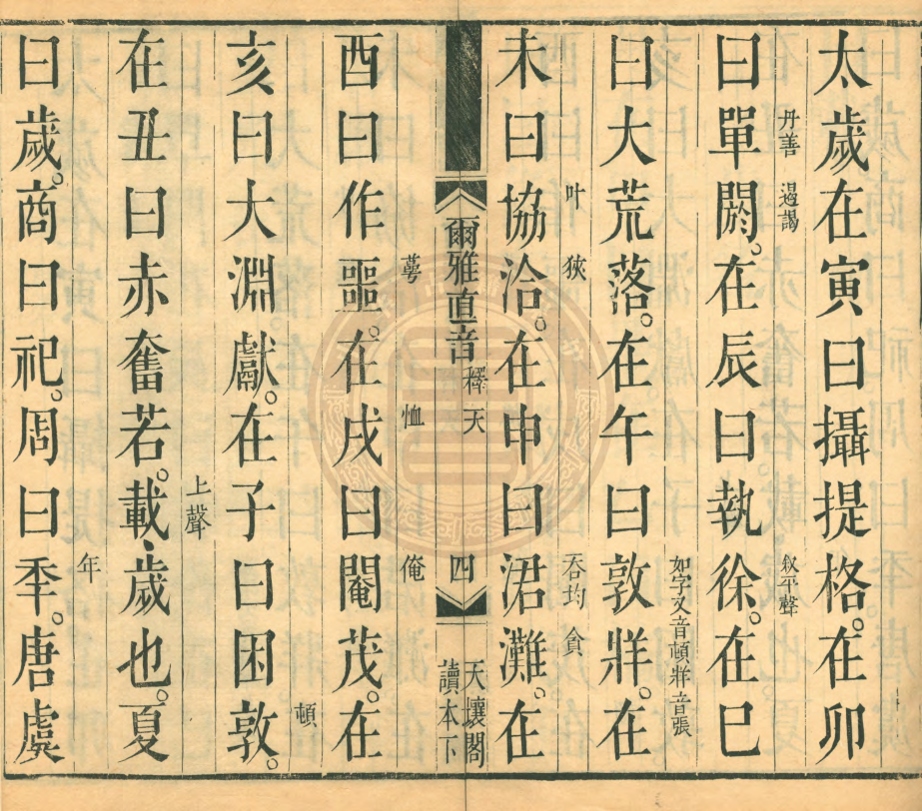 太歲在寅曰攝提格。在卯
丹善 遏謁 敘平聲
曰單閼。在辰曰執徐。在巳
如字又音頓牂音張
曰大荒落。在午曰敦牂。在
叶 狹 吞均 貪
未曰協洽。在申曰涒灘。在
爾雅直音 釋天 四
天壤閣
讀本下
蕚 恤 俺
酉曰作噩。在戌曰閹茂。在
頓
亥曰大淵獻。在子曰困敦。
上聲
在丑曰赤奮若。載、歲也。夏
年
曰歲。商曰祀。周曰秊。唐虞